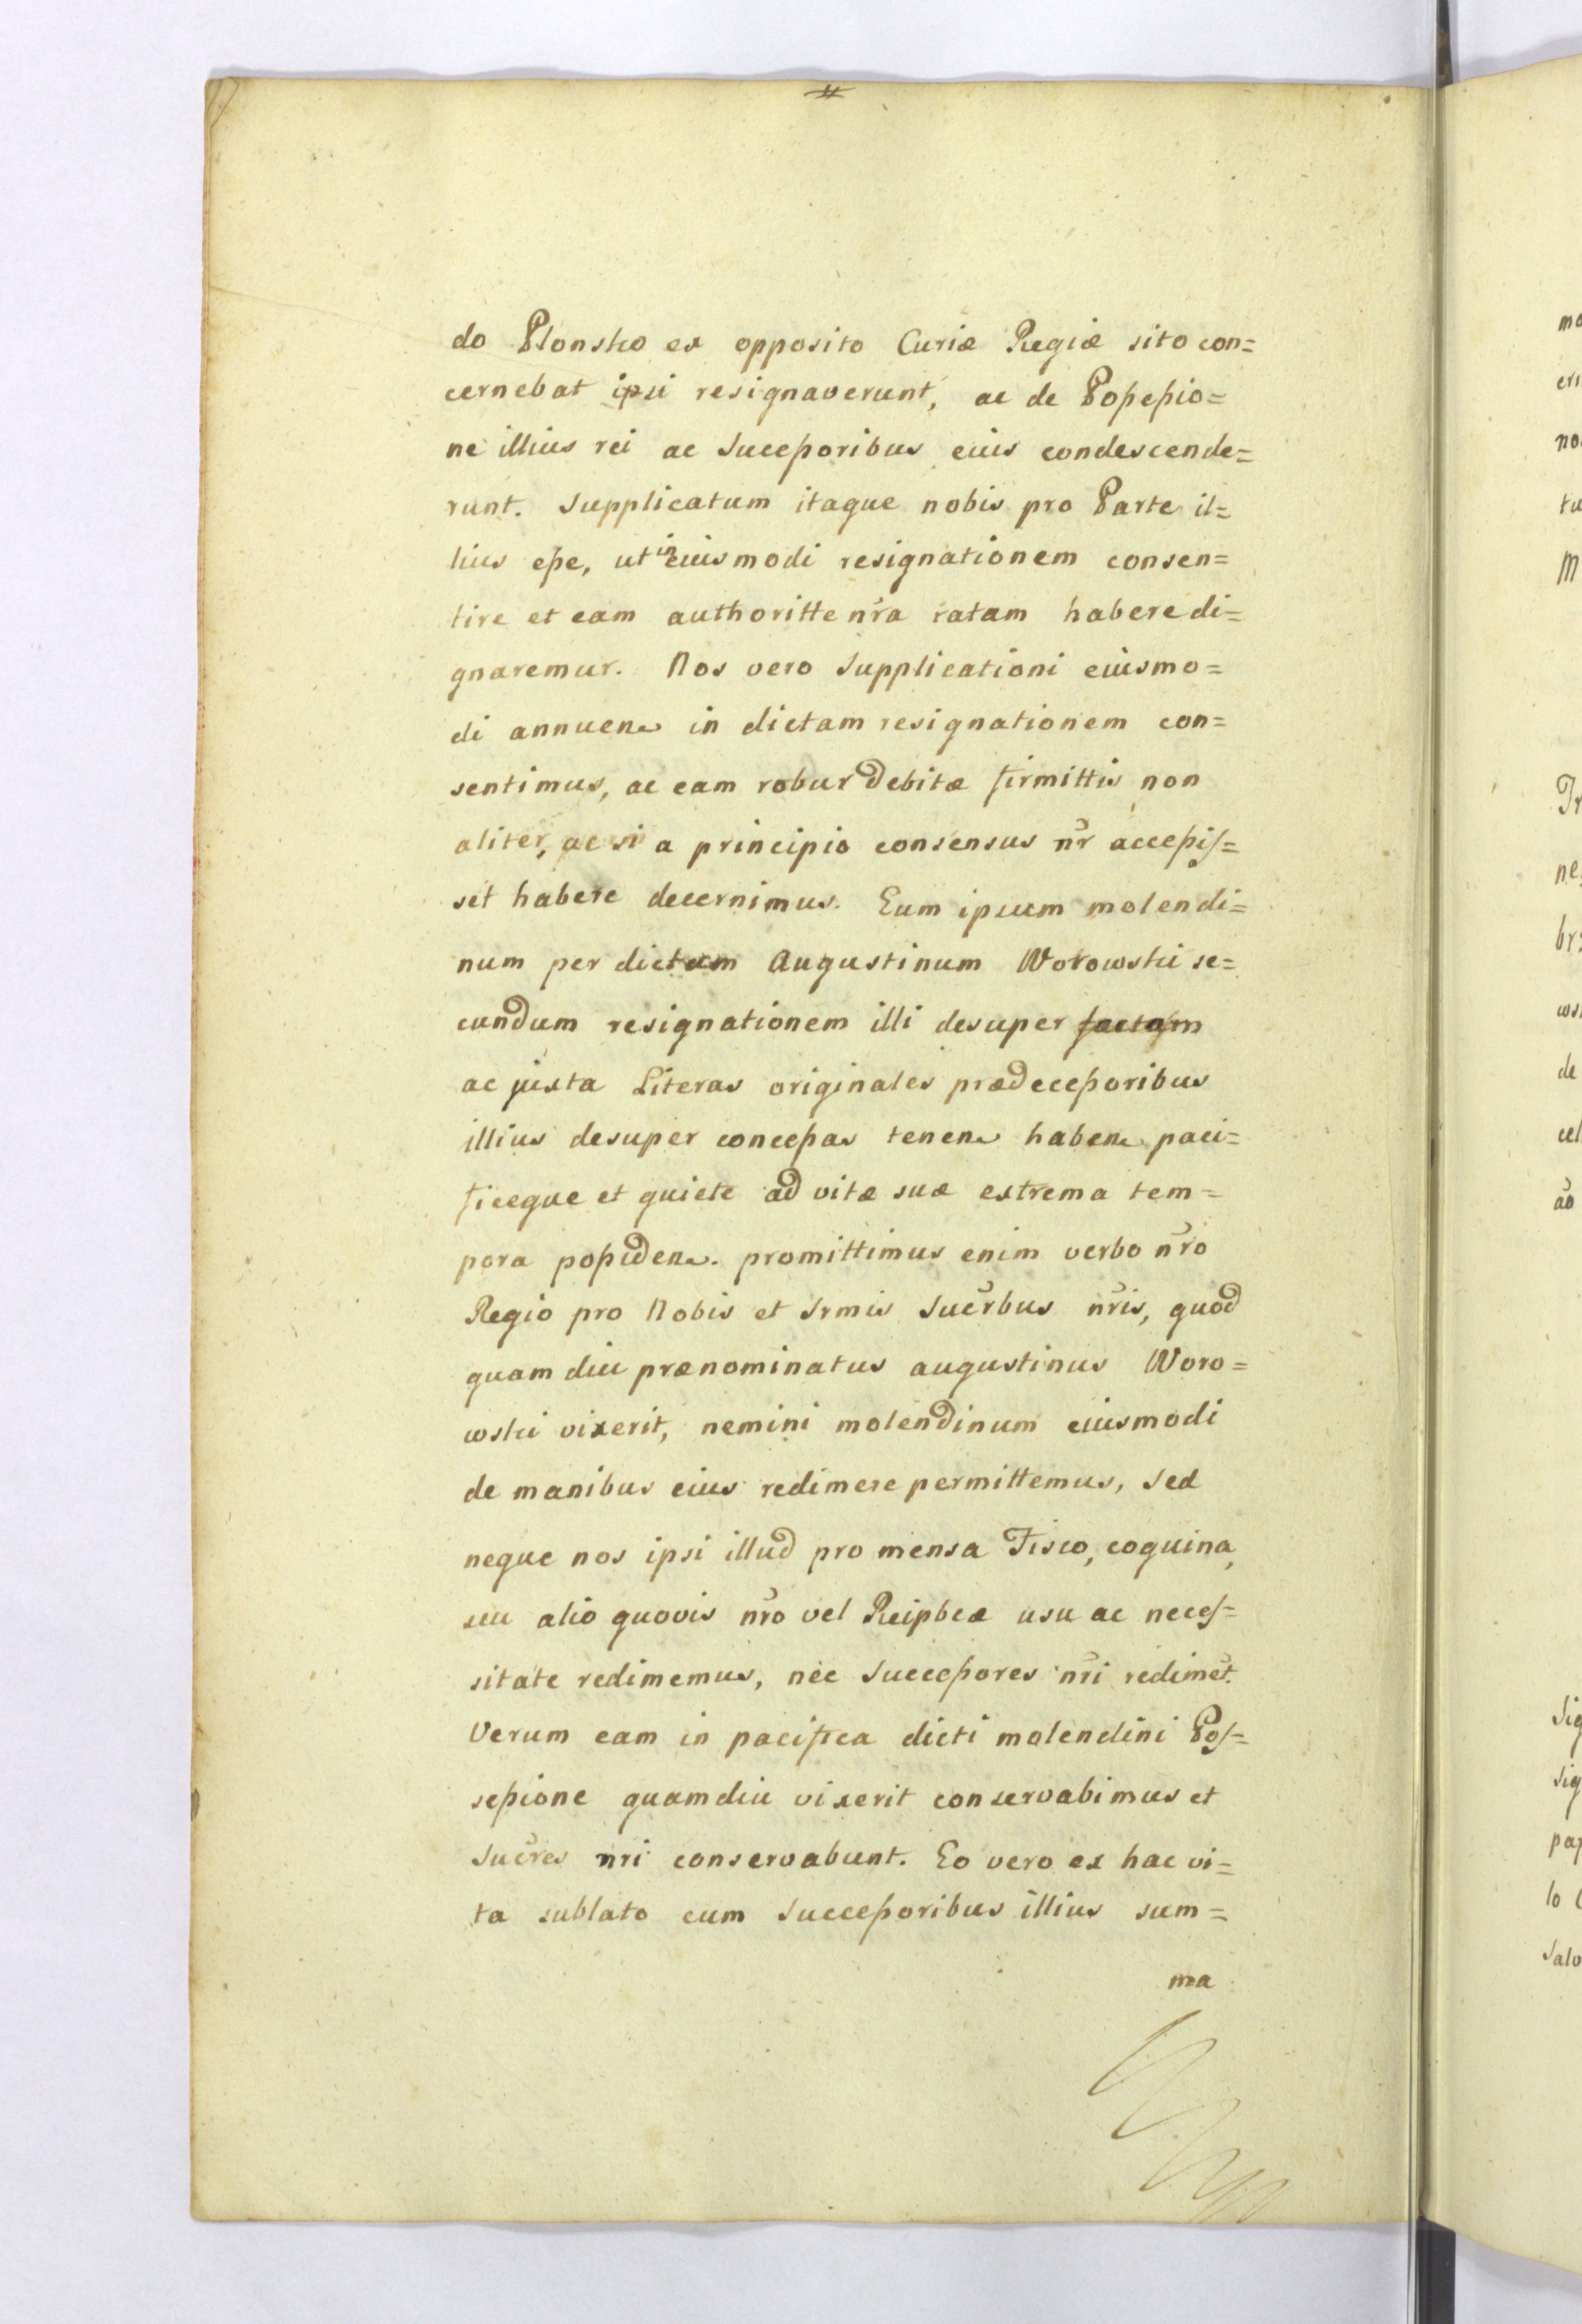 do Plonsko ex opposito Curiæ Regiæ sito con=
cernebat ipsi resignaverunt, ac de Possessio=
ne illius rei ac Successoribus eius condescende=
runt. Supplicatum itaque nobis pro Parte il=
lius esse, ut in eiusmodi resignationem consen=
tire et eam authoritte nr̃a ratam habere di=
gnaremur. Nos vero Supplicationi eiusmo=
di annuen. in dictam resignationem con=
sentimus, ac eam robur debitæ firmittis non
aliter, ac si a principio consensus nr̃ accepis=
set habere decernimus. Eum ipsum molendi=
num per dictum Augustinum Worowski se=
cundum resignationem illi desuper factam
ac juxta Literas originales prædecessoribus
illius desuper concessas tenen. haben. paci=
ficeque et quiete ad vitæ suæ extrema tem=
pora possiden. promittimus enim verbo nr̃o
Regio pro Nobis et Srmis Sucr̃bus nr̃is, quod
quam diu prænominatus augustinus Woro=
wski vixerit, nemini molendinum eiusmodi
de manibus eius redimere permittemus, Sed
neque nos ipsi illud pro mensa Fisco, coquina,
seu alio quovis nr̃o vel Reipbcæ usu ac neces=
sitate redimemus, nec Successores nr̃i redimẽt.
Verum eam in pacifica dicti molendini Pos=
sessione quamdiu vixerit conservabimus et
Sucr̃es nr̃i conservabunt. Eo vero ex hac vi=
ta sublato cum Successoribus illius sum=
ma